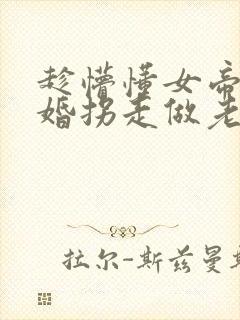 趁懵懂女帝
婚拐走做老
拉尔-斯兹曼